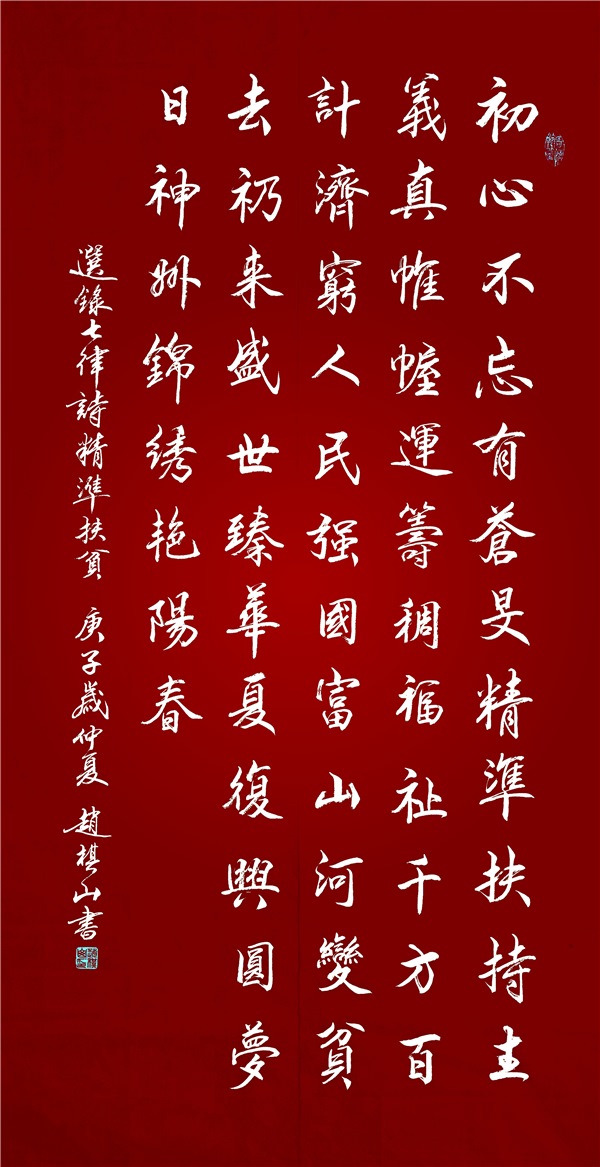 初心不忘有蒼旻精準扶持主
義真帷幄運籌稠福祉千方百
計濟窮人民强國富山河變貧
去礽来盛世臻華夏復興圓夢
日神州錦绣艳陽春
選錄七律詩精準扶貧 庚子歲仲夏 趙棋山書